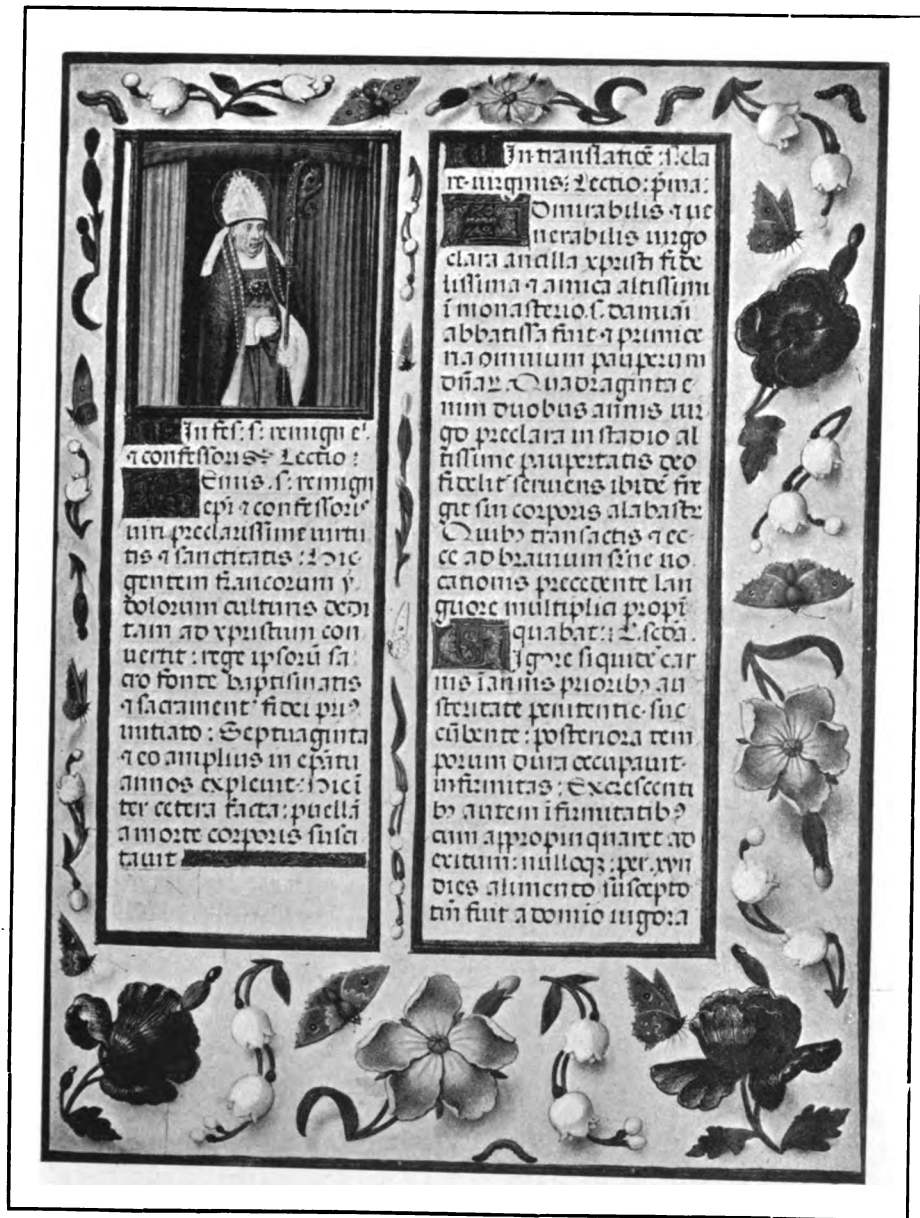 In fes. s. remigii e.
⁊ confessoris Lectio:
Enus. s. remigii
epi ⁊ confessoris
uiri preclarissime uirtu
tis ⁊ sanctitatis: Hic
gentem francorum y
dolorum culturis dedi
tam ad xpristum con
uertit: rege ipsorū sa
cro fonte baptismatis
⁊ sacrament' fidei priꝰ
initiato: Septuaginta
⁊ eo amplius in epātu
annos expleuit: Hic ī
ter cetera facta: puellā
a morte corporis susci
tauit
In translatiōe: s. cla
re uirginis: Lectio: p̄ma:
Dmirabilis ⁊ ue
nerabilis uirgo
clara ancilla xpristi fide
lissima ⁊ amica altissimi
ī monasterio. s. damiai
abbatissa fuit ⁊ primice
ria omnium pauperum
dn̄aꝝ. Quadraginta e
nim duobus annis uir
go preclara in stadio al
tissime paupertatis deo
fidelit' seruiens ibidē fre
git sui corporis alabastr
Quibꝫ transactis ⁊ ec
ce ad brauium sūne uo
cationis precedente lan
guore multiplici propī
quabat: L. scdā.
Igore siquidē car
nis ī annis prioribꝫ au
steritate penitentie suc
cūbente: posteriora tem
porum dura occupauit
infirmitas: Excrescenti
bꝫ autem ī firmitatibꝫ
cum appropinquaret ad
exitum: nulloqꝫ: per .xvii
dies alimento suscepto
tm̄ fuit a domio uigora